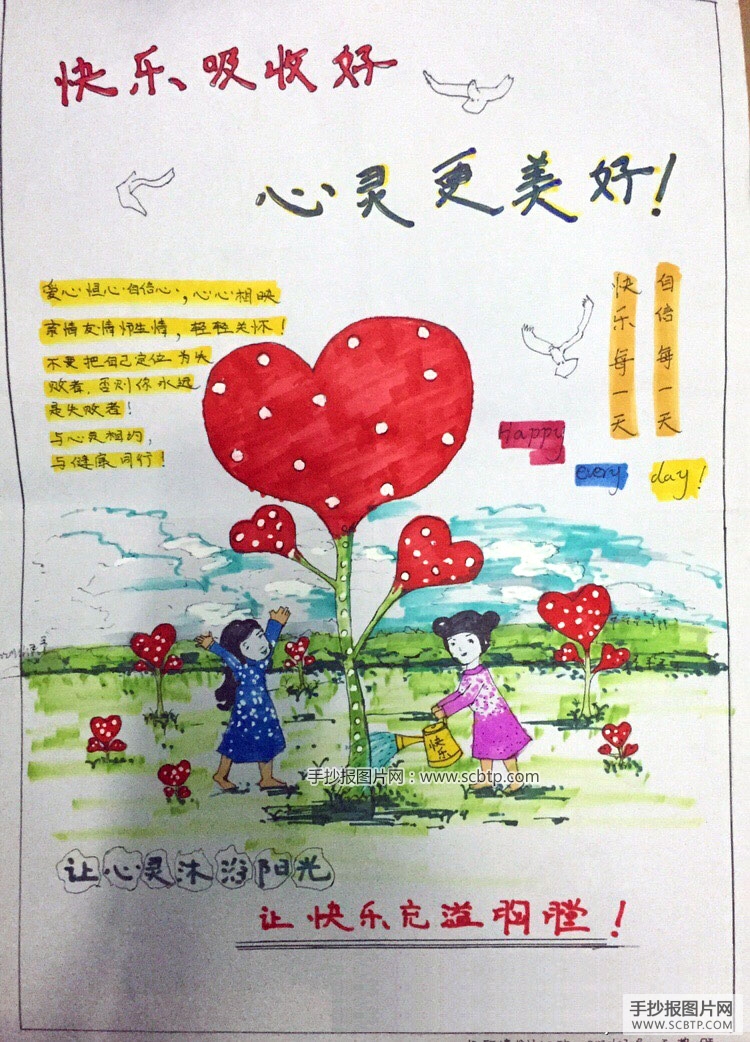 快乐吸收好
心灵更美好!
爱心恒心自信心,心心相映
亲情友情师生情,轻轻关怀!
不要把自己定位为失
败者,否则你永远
是失败者!
与心灵相约,
与健康同行!
自信每一天
快乐每一天
Happy
every day!
快乐
手抄报图片网:www.scbtp.com
让心灵沐浴阳光
让快乐充溢胸膛!
手抄报图片网
WWW.SCBTP.COM